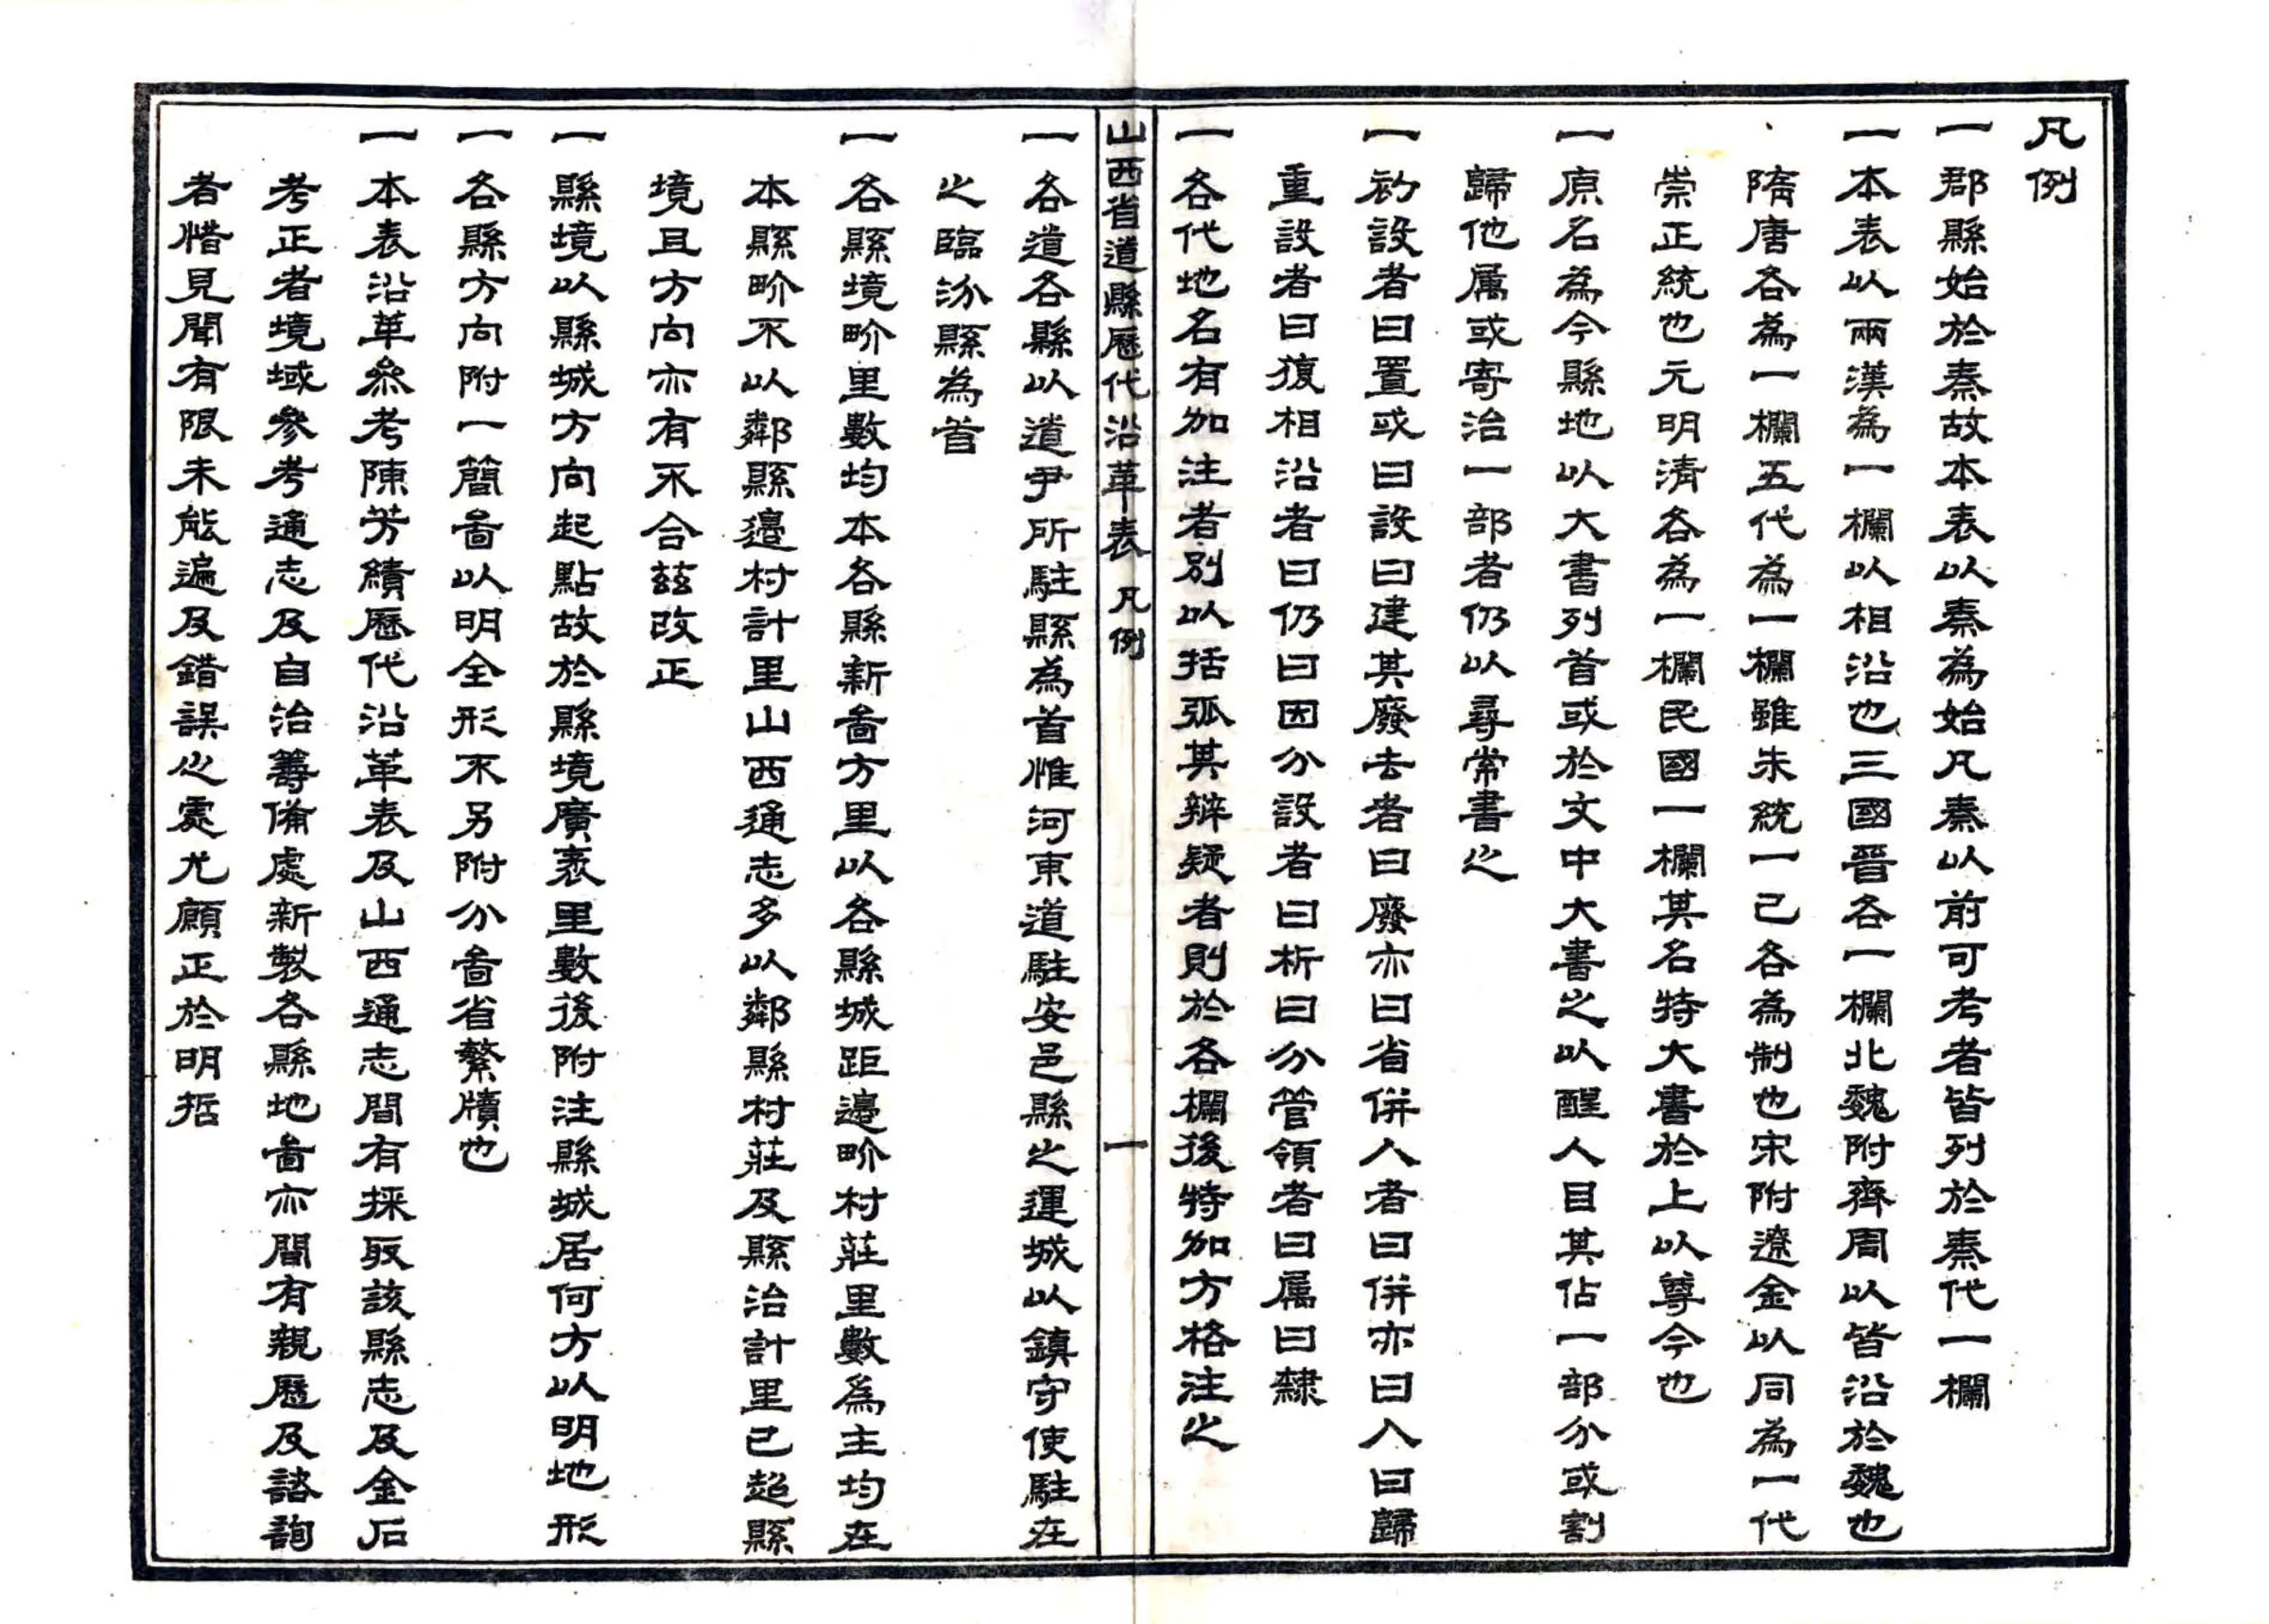 凡例
一郡縣始於秦故本表以秦為始凡秦以前可考者皆列於秦代一欄
一本表以兩漢為一欄以相沿也三國晉各一欄北魏附齊周以皆沿於魏也
隋唐各為一欄五代為一欄雖未統一已各為制也宋附遼金以同為一代
崇正統也元明清各為一欄民國一欄其名特大書於上以尊今也
一原名為今縣地以大書列首或於文中大書之以醒人目其佔一部分或割
歸他属或寄治一部者仍以尋常書之
一初設者曰置或曰設曰建其廢去者曰廢亦曰省併人者曰併亦曰入曰歸
重設者曰復相沿者曰仍曰因分設者曰析曰分管領者曰属曰隸
一各代地名有加注者別以括弧其辨疑者則於各欄後特加方格注之
山西省道縣歷代沿革表 凡例 一
一各道各縣以道尹所駐縣為首惟河東道駐安邑縣之運城以鎮守使駐在
之臨汾縣為首
一各縣境畍里數均本各縣新啚方里以各縣城距邊畍村莊里數為主均在
本縣畍不以鄰縣邊村計里山西通志多以鄰縣村莊及縣治計里已超縣
境且方向亦有不合茲改正
一縣境以縣城方向起點故於縣境廣袤里數後附注縣城居何方以明地形
一各縣方向附一簡啚以明全形不另附分啚省繁牘也
一本表沿革叅考陳芳績歷代沿革表及山西通志間有採取該縣志及金石
考正者境域參考通志及自治籌備處新製各縣地啚亦間有親歷及諮詢
者惜見聞有限未能遍及錯誤之處尤願正於明哲